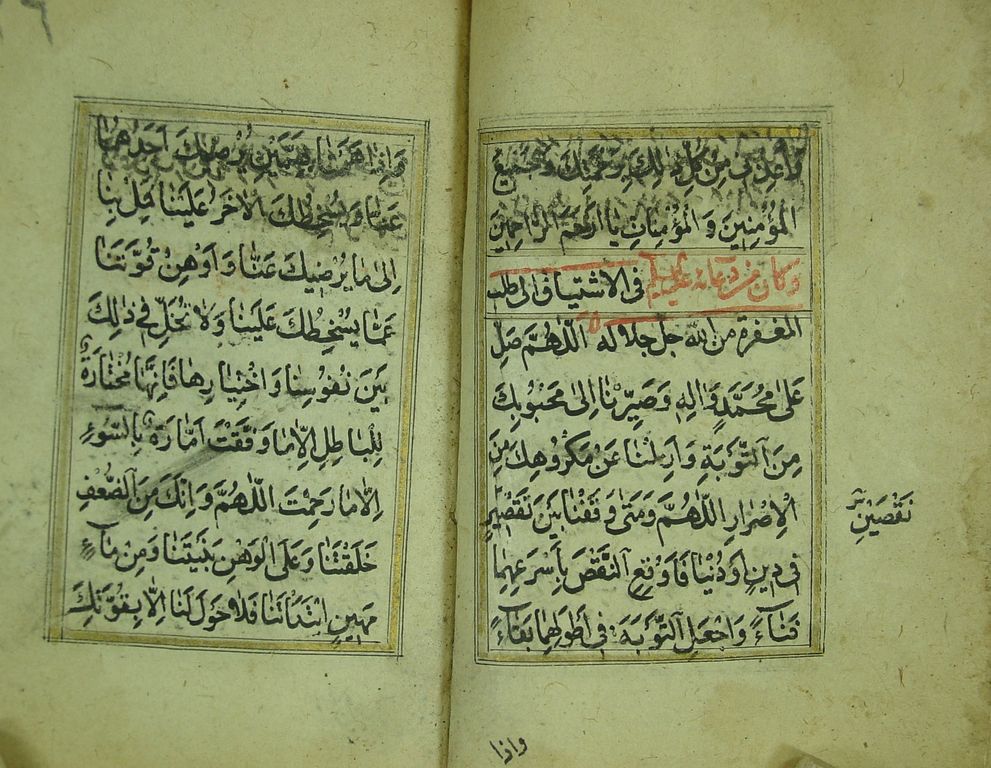 وأعذني من كل ذلك برحمتك وجميع
المُؤْمِنِينَ وَالْمُؤْمِنَاتِ يَا أَرْحَمَ الرَّاحِمِينَ
وكان من دعائه عليه السلام في الاشتياق الى طلب
المغفرة من الله جل جلاله اَللّٰهُمَّ صَلِّ
عَلىٰ مُحَمَّدٍ وَاٰلِهِ وَصَيِّرْنَا اِلىٰ مَحْبُوبِكَ
مِنَ التَّوْبَةِ وَاَزِلْنَا عَنْ مَكْرُوهِكَ مِنَ
الْاِصْرَارِ اَللّٰهُمَّ وَمَتىٰ وَقَفْنَا بَيْنَ نَقْصَيْنِ
نَقْصَيْنِ
فى دِينٍ اَوْ دُنْيَا فَاَوْقِعِ النَّقْصَ بِاَسْرَعِهِمَا
فَنَاءً وَاجْعَلِ التَّوْبَةَ فى اَطْوَلِهِمَا بَقَاءً
واذا
وَاِذَا هَمَمْنَا بِهَمَّيْنِ يُرْضِيكَ اَحَدُهُمَا
عَنَّا وَيُسْخِطُكَ الْاٰخَرُ عَلَيْنَا فَمِلْ بِنَا
اِلىٰ مَا يُرْضِيكَ عَنَّا وَاَوْهِنْ قُوَّتَنَا
عَمَّا يُسْخِطُكَ عَلَيْنَا وَلَا تُخَلِّ فى ذٰلِكَ
بَيْنَ نُفُوسِنَا وَاخْتِيَارِهَا فَاِنَّهَا مُخْتَارَةٌ
لِلْبَاطِلِ اِلَّا مَا وَفَّقْتَ اَمَّارَةٌ بِالسُّوءِ
اِلَّا مَا رَحِمْتَ اَللّٰهُمَّ وَاِنَّكَ مِنَ الضُّعْفِ
خَلَقْتَنَا وَعَلَى الْوَهْنِ بَنَيْتَنَا وَمِنْ مَاءٍ
مَهِينٍ ابْتَدَأْتَنَا فَلَا حَوْلَ لَنَا اِلَّا بِقُوَّتِكَ